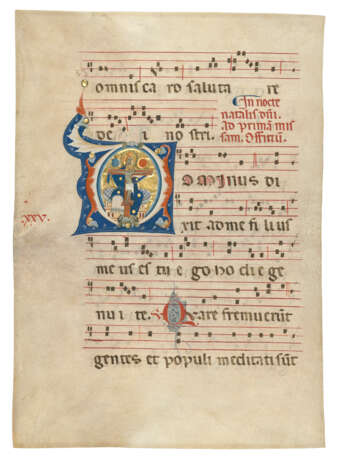 omnis ca ro saluta re
de i no stri.
In nocte
natalis dñi.
Ad primā mis
sam. Officiū.
OMINUS di
xxv.
xit ad me fi lius
me us es tu e go ho di e ge
nu i te. Quare fremuerūt
gentes et populi meditati sūt